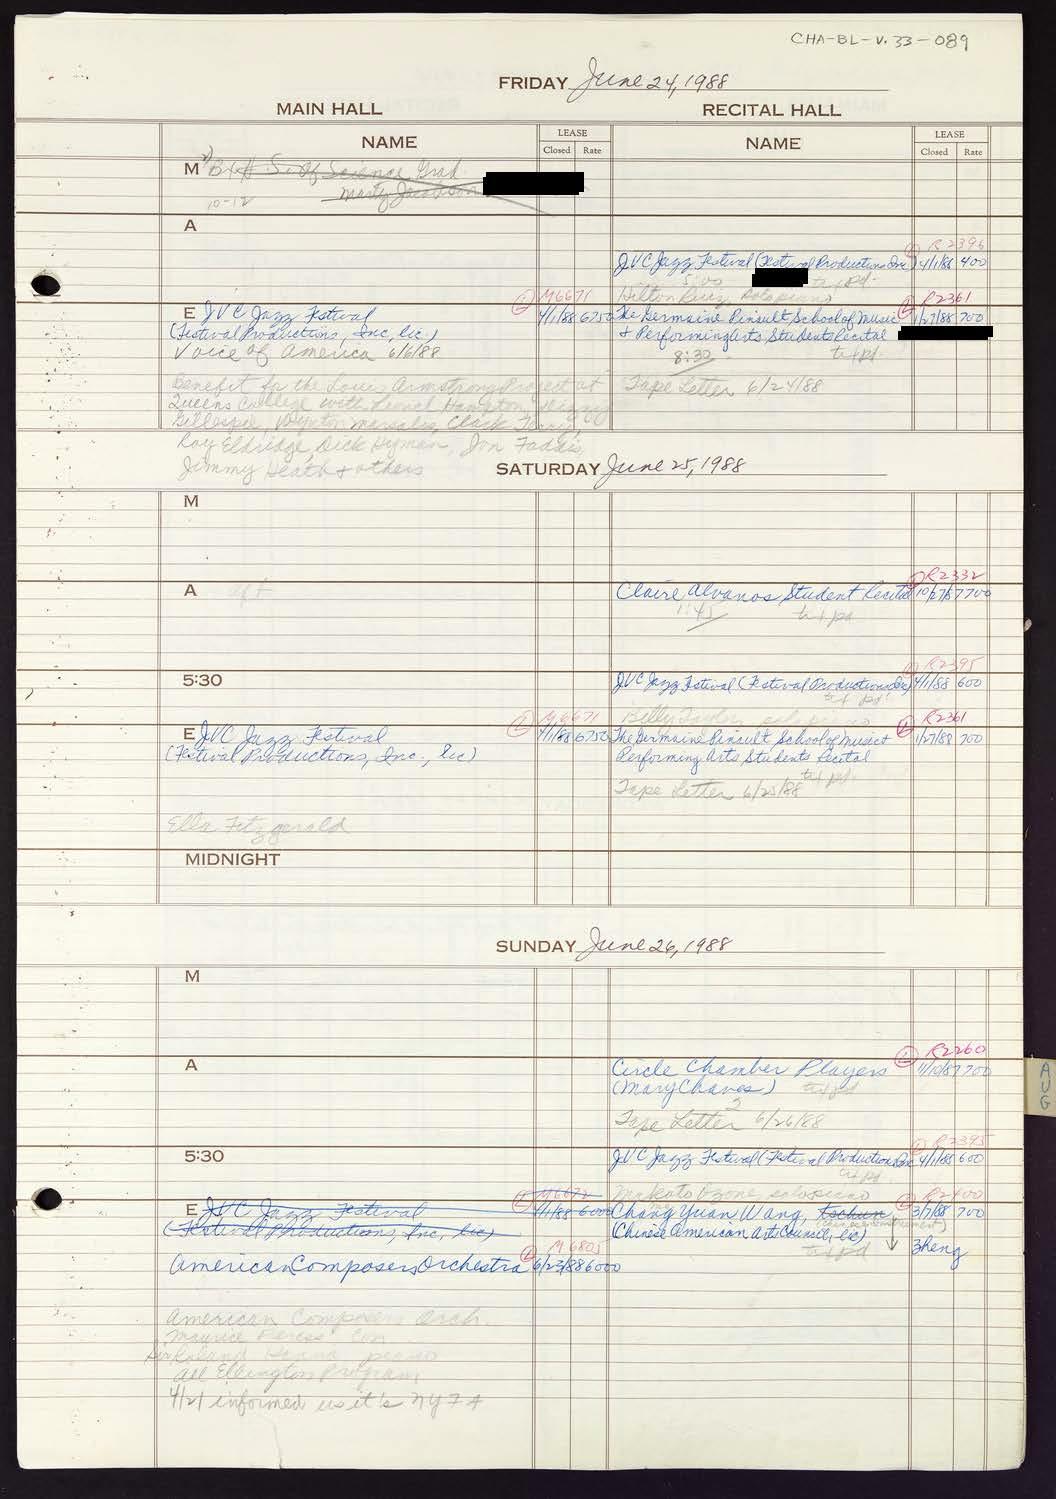 CHA-BL-V.33-089
FRIDAY June 24, 1988
MAIN HALL
RECITAL HALL
NAME
LEASE
Closed Rate
NAME
LEASE
Closed Rate
M
Of Science Grad.
Marty Jacobson
10-12
A
R2396
JVC Jazz Festival (Festival Productions Inc) 4/1/88 400
5:00
Hilton Ruiz, solo piano
M6671
R2361
E JVC Jazz Festival 4/1/88 6750
(Festival Productions, Inc, lic)
Voice of America 6/6/88
The Germaine Pinsult School of Music 1/27/88 700
& Performing Arts Students Recital
8:30
Tape Letter 6/24/88
Benefit for the Louis Armstrong Project at
Queens College with Lionel Hampton, Dizzy
Gillespie, Wynton Marsalis, Clark Terry,
Roy Eldridge, Dick Hyman, Jon Faddis,
Jimmy Heath & others
SATURDAY June 25, 1988
M
A aft
R2332
Claire Alvanos Student Recital 10/27/87 700
1:45
5:30
R2395
JVC Jazz Festival (Festival Productions Inc) 4/1/88 600
Billy Taylor, solo piano
M6671
R2361
E JVC Jazz Festival 4/1/88 6750
(Festival Productions, Inc., lic)
The Germaine Pinsult School of Music & 1/27/88 700
Performing Arts Students Recital
Tape Letter 6/25/88
Ella Fitzgerald
MIDNIGHT
SUNDAY June 26, 1988
M
A
R2260
Circle Chamber Players 11/10/87 700
(Mary Chaves)
2
Tape Letter 6/26/88
5:30
R2395
JVC Jazz Festival (Festival Productions Inc 4/1/88 600
Makoto Ozone, solo piano
M6672
R2400
E JVC Jazz Festival 4/1/88 6000
(Festival Productions, Inc, lic)
Chang Yuan Wang, 3/7/88 700
(Chinese instrument)
(Chinese American Arts Council, lic)
Zheng
M6805
American Composers Orchestra 6/23/88 6000
American Composers Orch.
Maurice Peress Con
Sir Roland Hanna piano
All Ellington Program
4/21 informed us it's NYFA
AUG